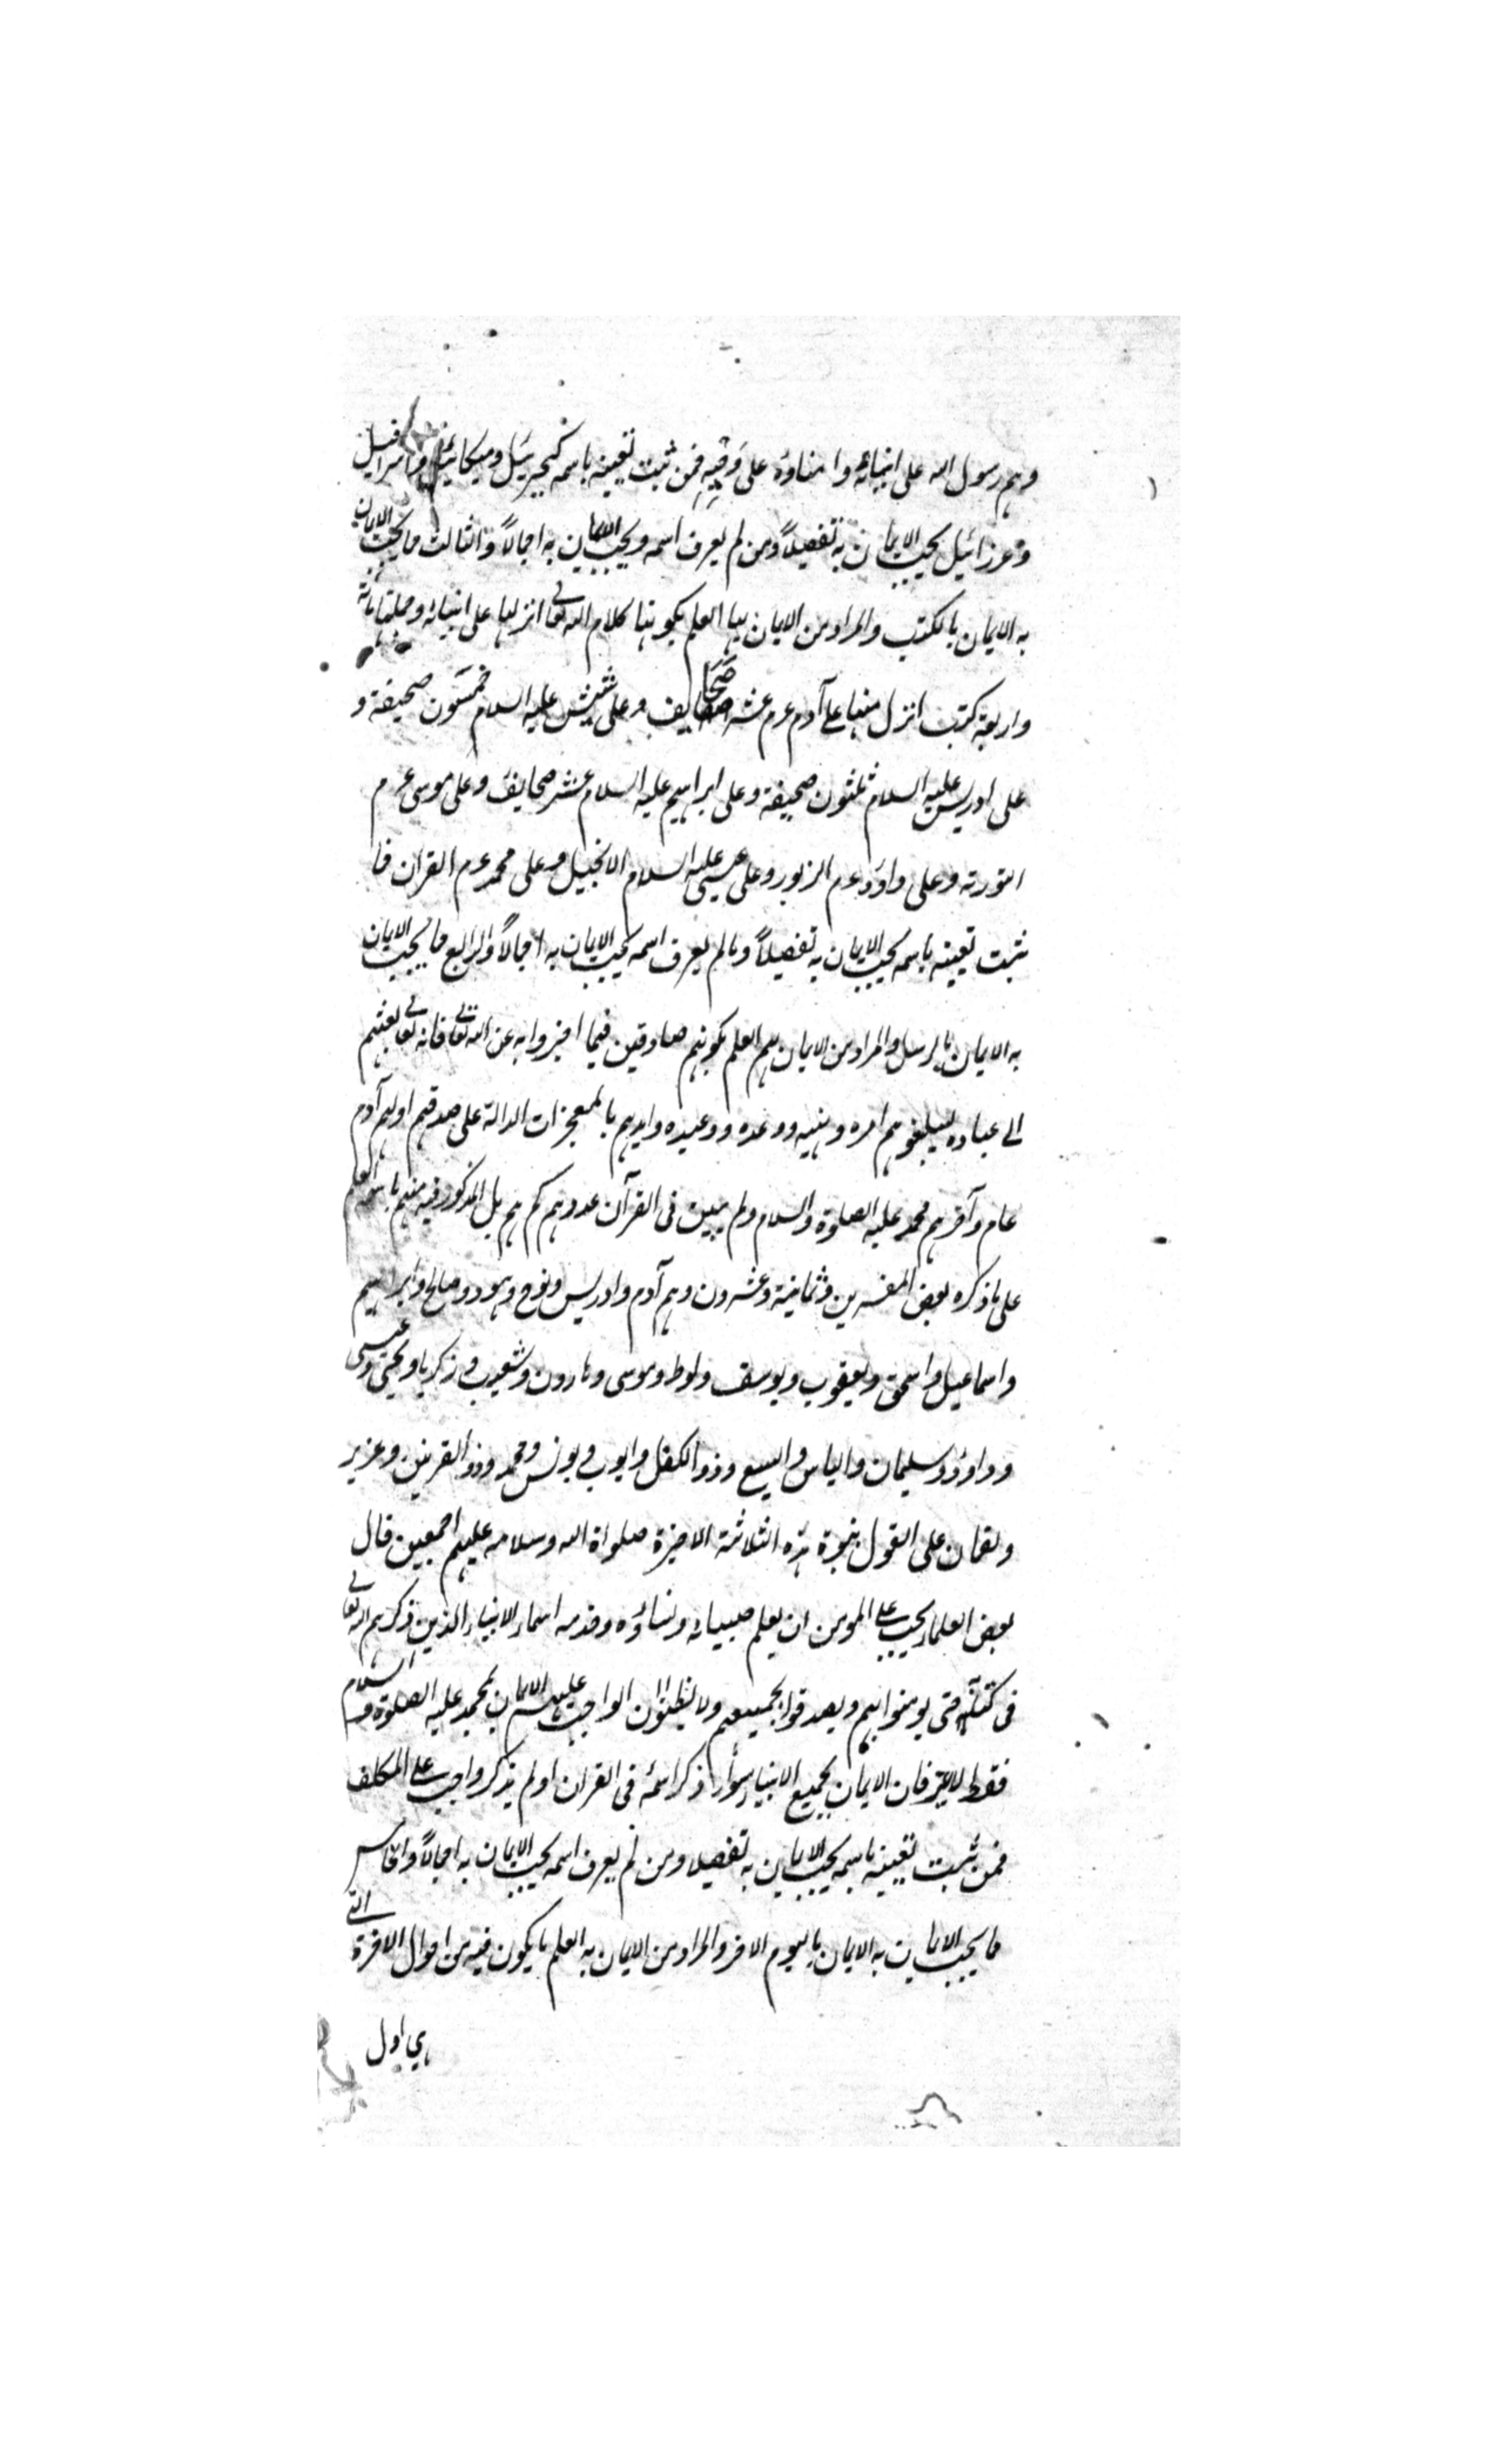 وهم رسول الله على انبيائه وامناؤه على وحيه فمن ثبت تعينه باسمه كجبرئيل وميكائيل واسرافيل
وعزرائيل يجب الايمان به تفصيلاً ومن لم يعرف اسمه ويجب الايمان به اجمالاً والثالث ما يجب الايمان
به الايمان بالكتب والمراد من الايمان بها العلم بكونها كلام الله تعالى انزلها على انبيائه وجملتها مائة
واربعة كتب انزل منها على آدم عم عشر صحايف وعلى شيش عليه السلام خمسون صحيفة و
على ادريس عليه السلام ثلثون صحيفة وعلى ابراهيم عليه السلام عشر صحايف وعلى موسى عم
التورية وعلى داود عم الزبور وعلى عيسى عليه السلام الانجيل وعلى محمد عم القران فما
ثبت تعينه باسمه يجب الايمان به تفصيلاً وما لم يعرف اسمه يجب الايمان به اجمالاً والرابع ما يجب الايمان
به الايمان بالرسل والمراد من الايمان بهم العلم بكونهم صادقين فيما اخبروا به عن الله تعالى فانه تعالى بعثهم
الى عباده ليبلغوهم امره ونهيه ووعده ووعيده وايدهم بالمعجزات الدالة على صدقهم اولهم آدم
عم وآخرهم محمد عليه الصلوة والسلام ولم يبين فى القرآن عددهم كم هم بل المذكور فيه منهم باسم العلم
على ما ذكره بعض المفسرين ثمانية وعشرون وهم آدم وادريس ونوح وهود وصالح وابراهيم
واسماعيل واسحق ويعقوب ويوسف ولوط وموسى وهارون وشعيب وزكريا ويحيى وعيسى
وداود وسليمان والياس واليسع وذو الكفل وايوب ويونس ومحمد وذو القرنين وعزير
ولقمان على القول بنبوة هذه الثلاثة الاخيرة صلواة الله وسلامه عليهم اجمعين قال
بعض العلماء يجب على المومن ان يعلم صبيانه ونساؤه وخدمه اسماء الانبياء الذين ذكرهم الله تعالى
فى كتابه حتى يومنوا بهم ويصدقوا بجميعهم ولا يظنوا ان الواجب عليهم الايمان بمحمد عليه الصلوة والسلام
فقط لا غير فان الايمان بجميع الانبياء سواء ذكر اسمه فى القران اولم يذكر واجب على المكلف
فمن ثبت تعينه باسمه يجب الايمان به تفصيلا ومن لم يعرف اسمه يجب الايمان به اجمالاً والخامس
ما يجب الايمان به الايمان باليوم الاخر والمراد من الايمان به العلم بما يكون فيه من احوال الاخرة التى
هي اول